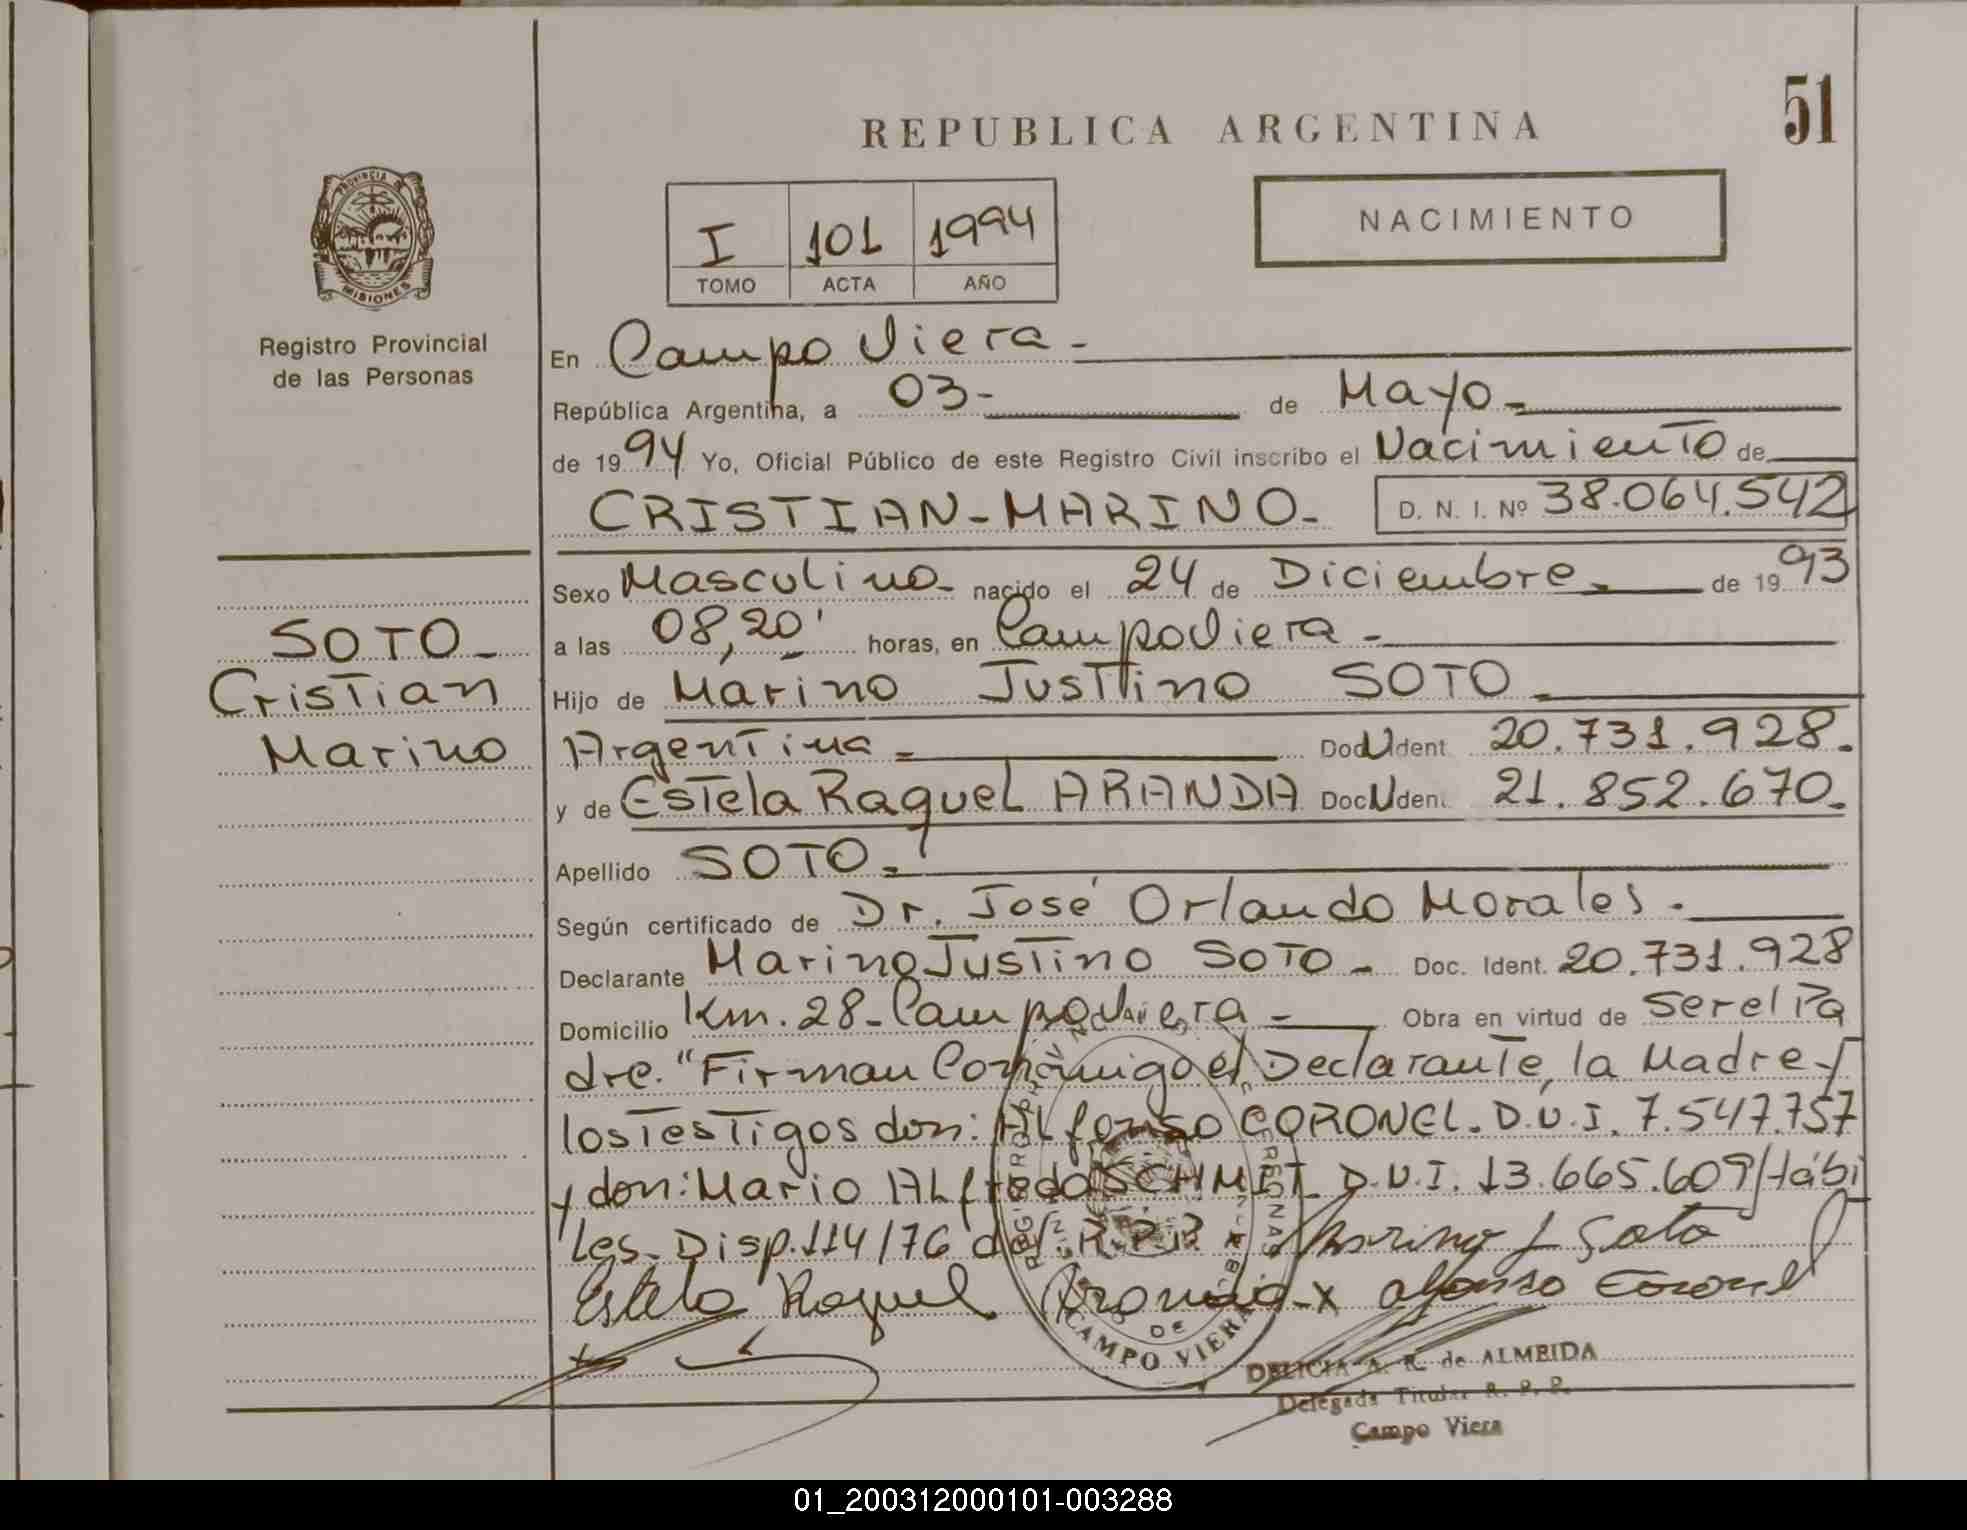 51
REPUBLICA ARGENTINA
PROVINCIA DE
MISIONES
Registro Provincial
de las Personas
I 101 1994
TOMO ACTA AÑO
NACIMIENTO
En Campo Viera -
República Argentina, a 03- de Mayo -
de 1994 Yo, Oficial Público de este Registro Civil inscribo el Nacimiento de
CRISTIAN-MARINO- D. N. I. Nº 38.064.542
Sexo Masculino- nacido el 24 de Diciembre - de 1993
a las 08,20' horas, en Campo Viera -
Hijo de Marino Justino SOTO -
Argentina - Doc Ident. 20.731.928.
y de Estela Raquel ARANDA Doc Iden. 21.852.670.
Apellido SOTO -
Según certificado de Dr. José Orlando Morales.
Declarante Marino Justino SOTO - Doc. Ident. 20.731.928
Domicilio Km. 28- Campo Viera - Obra en virtud de ser el Pa
dre. "Firman Conmigo el Declarante, la Madre y
los Testigos don: ALfonso CORONEL. D.U.I. 7.547.757
y don: Mario ALfredo SCHMIT D.U.I. 13.665.609/Hábi
les. Disp. 114/76 del R.P.P. Marino J Soto
Estela Raquel Aranda - x Alfonso Coronel
SOTO -
Cristian
Marino
CAMPO VIERA
DELICIA A. R. de ALMEIDA
Delegada Titular R. P. P.
Campo Viera
01_200312000101-003288